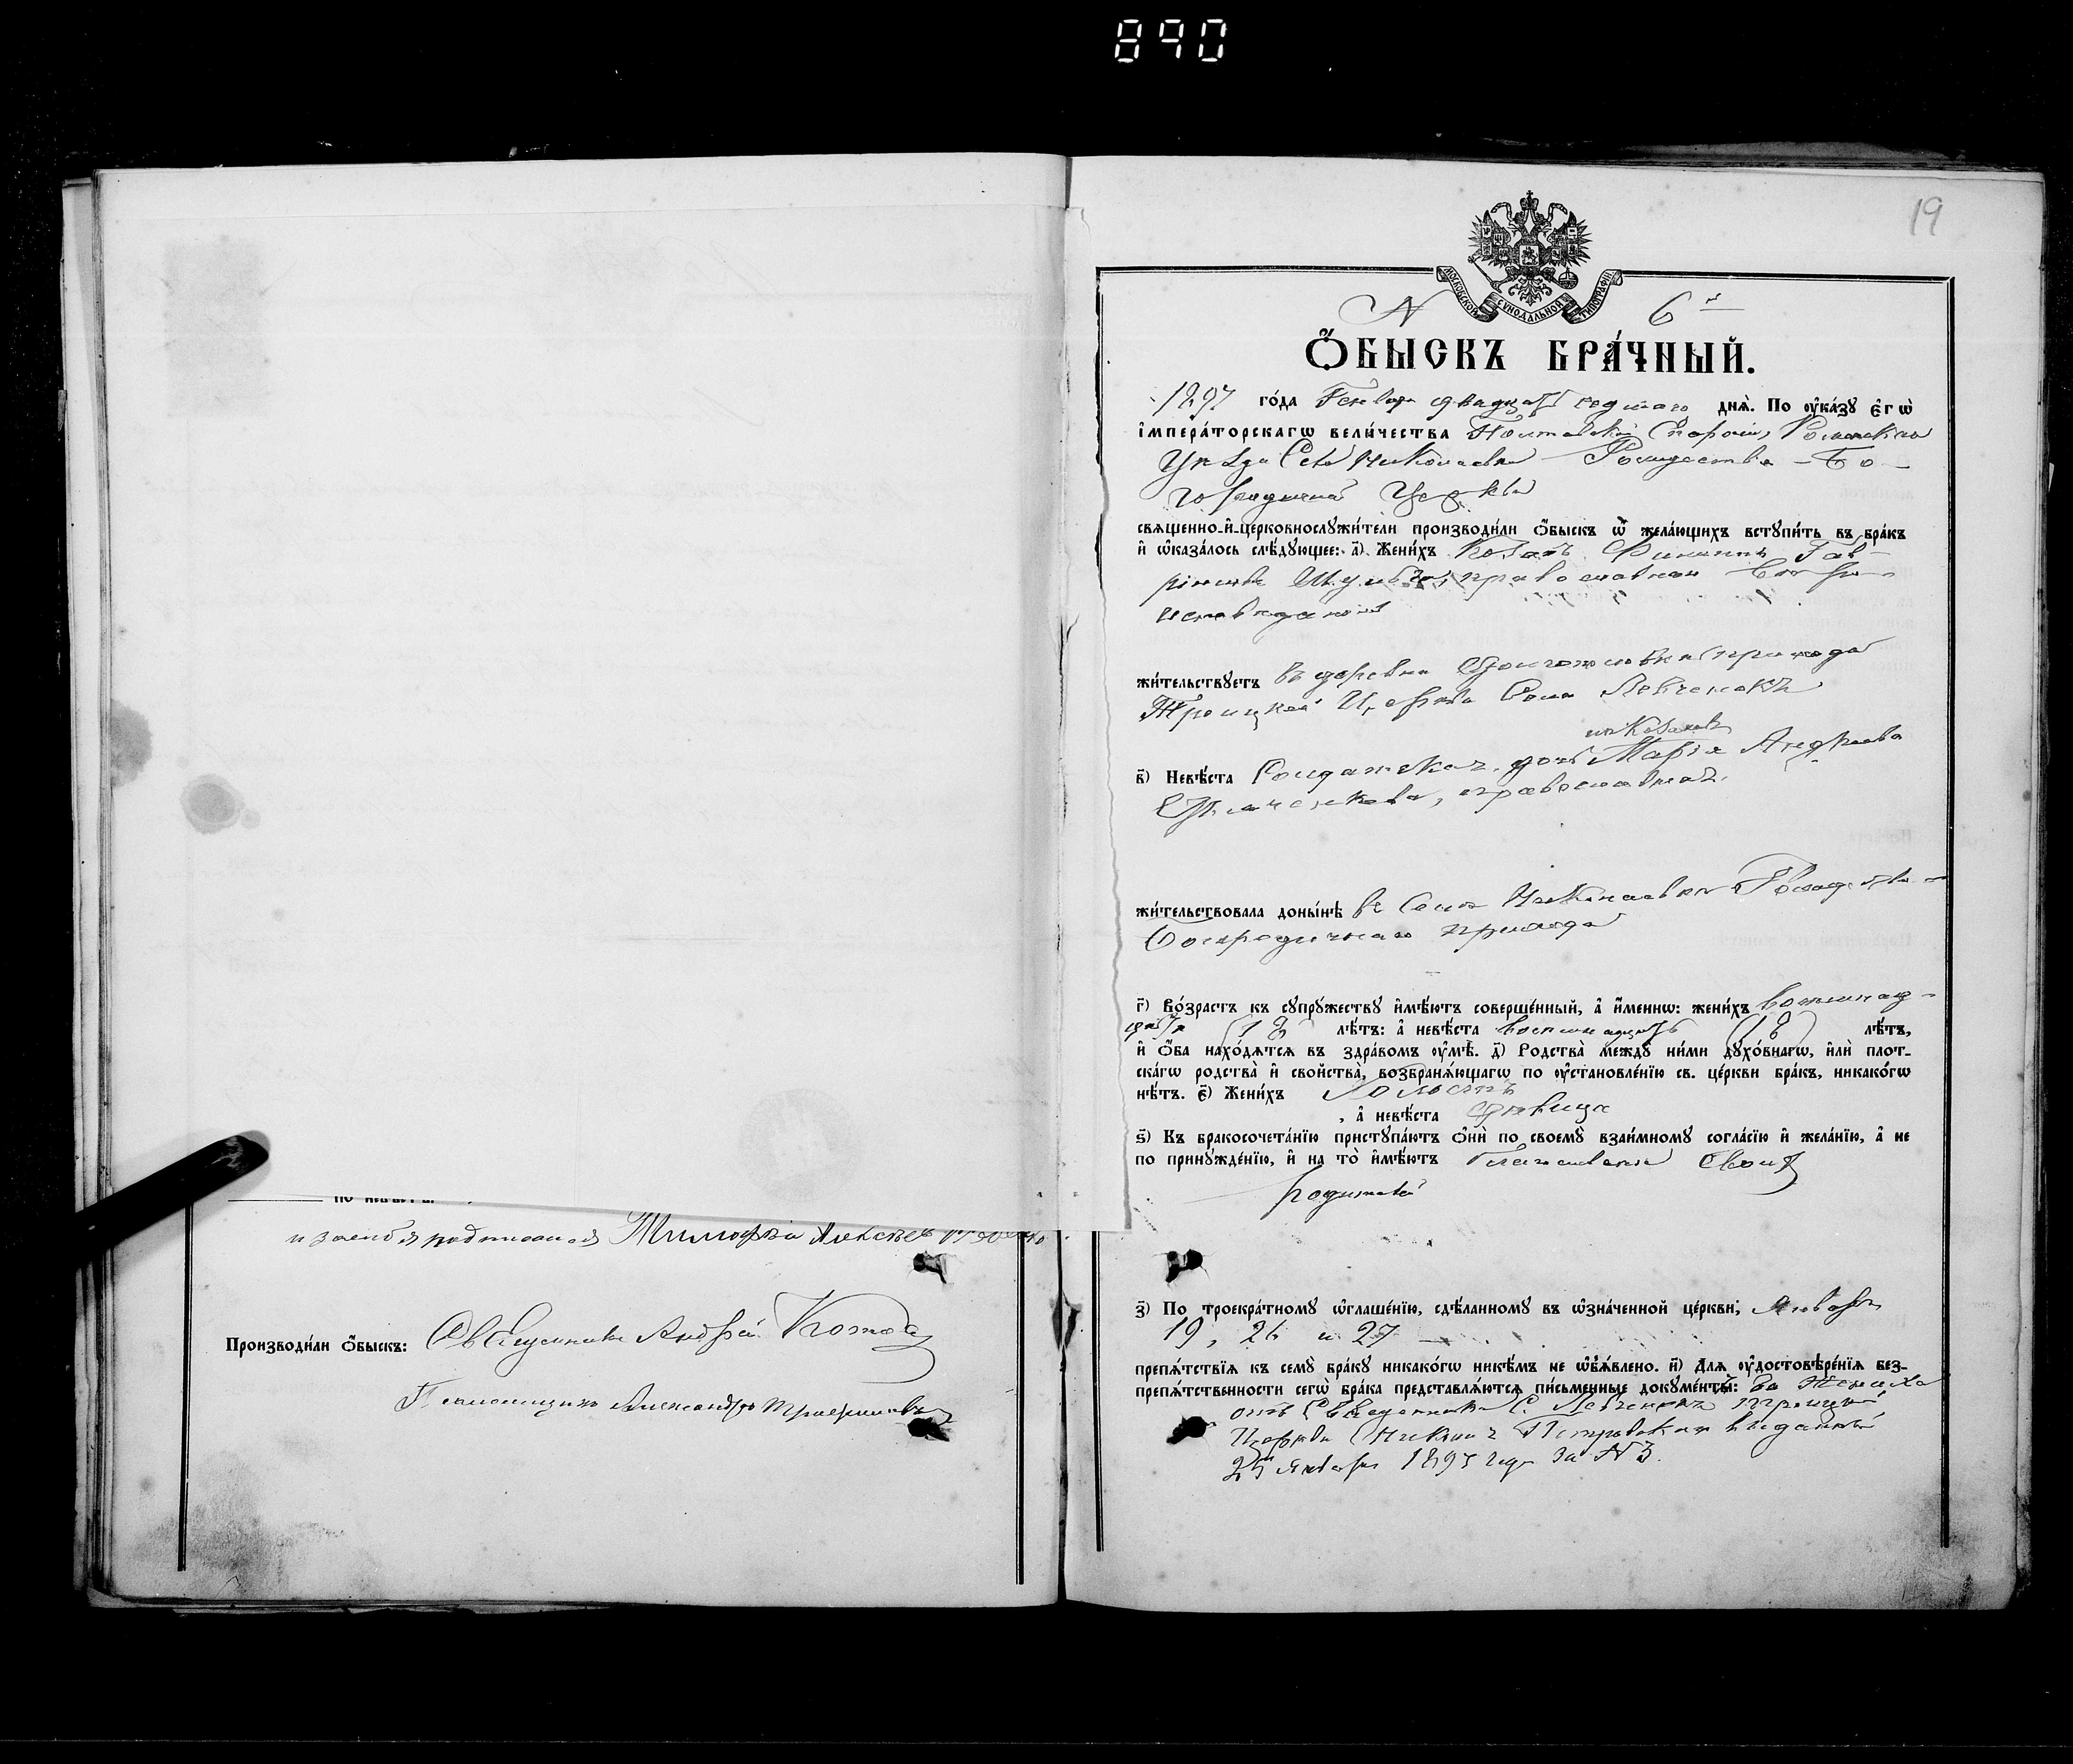 890
19
МОСКОВСКОЙ СѴНОДАЛЬНОЙ ТИПОГРАФІИ
N 6й
Ѻ҆БЫСКЪ БРА́ЧНЫЙ.
1897 го́да Генваря двадцать седмаго днѧ̀. По ᲂу҆ка́зꙋ є҆гѡ̀
і҆мпера́торскагѡ вели́чества Полтавской Епархіи, Роменскаго
Уѣзда Села Николаевки Рождество-Бо-
городичной Церкви
свѧщенно-и҆-церковнослꙋжи́тели производи́ли ѻ҆́быскъ ѡ҆ жела́ющихъ встꙋпи́ть въ бра́къ
и҆ ѡ҆каза́лось слѣ́дꙋющее: а҃) Жени́хъ Козакъ Филиппъ Гав-
ріиловъ православнаго
исповѣданія
жи́тельствꙋетъ въ деревни прихода
Троицкой Церкви Села Левченокъ
козаковъ
в҃) Невѣ́ста дочь Марія Андреева
православная.
жи́тельствовала доны́нѣ въ Селѣ Николаевки Рождество-
Богородичнаго прихода
г҃) Во́зрастъ къ сꙋпрꙋ́жествꙋ и҆мѣ́ютъ соверше́нный, а҆ и҆́меннѡ: жени́хъ восемнад-
цать (18) лѣ́тъ: а҆ невѣ́ста восемнадцать (18) лѣ́тъ,
и҆ ѻ҆́ба нахо́дѧтсѧ въ здра́вомъ ᲂу҆мѣ̀. д҃) Родства̀ междꙋ̀ ни́ми дꙋхо́внагѡ, и҆лѝ плот-
ска́гѡ родства̀ и҆ сво́йства̀, возбранѧ́ющагѡ по ᲂу҆становле́нїю св. це́ркви бра́къ, никако́гѡ
нѣ́тъ. є҃) Жени́хъ холостъ
, а҆ невѣ́ста дѣвица
ѕ҃) Къ бракосочета́нїю пристꙋпа́ютъ ѻ҆нѝ по своемꙋ̀ взаи́мномꙋ согла́сїю и҆ жела́нїю, а҆ не
по принꙋжде́нїю, и҆ на то̀ и҆мѣ́ютъ своихъ
родителей
з҃) По троекра́тномꙋ ѡ҆глаше́нїю, сдѣ́ланномꙋ въ ѡ҆зна́ченной це́ркви, Января
19, 26 и 27
препѧ́тствїѧ къ семꙋ̀ бра́кꙋ никако́гѡ никѣ́мъ не ѡ҆б̾ѧ́влено. и҃) Длѧ ᲂу҆достовѣре́нїѧ без-
препѧ́тственности сегѡ̀ бра́ка представлѧ́ютсѧ пи́сьменные докꙋме́нты: За Жениха
отъ Священника С. Левченокъ Троицкой
Церкви выданный
25 Января 1897 года за N 3.
по невѣстѣ
и за себя подписался Тимофей Алексѣевъ
Производи́ли ѻ҆́быскъ: Священникъ Андрей
Псаломщикъ Александръ